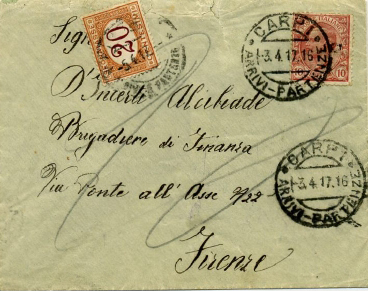 Sig
20
CARPI
-3.4.17.16
ARRIVI-PARTENZE
10
Alcibiade
Brigadiere di Finanza
Via Ponte all' Asse
CARPI
-3.4.17.16
ARRIVI-PARTENZE
Firenze